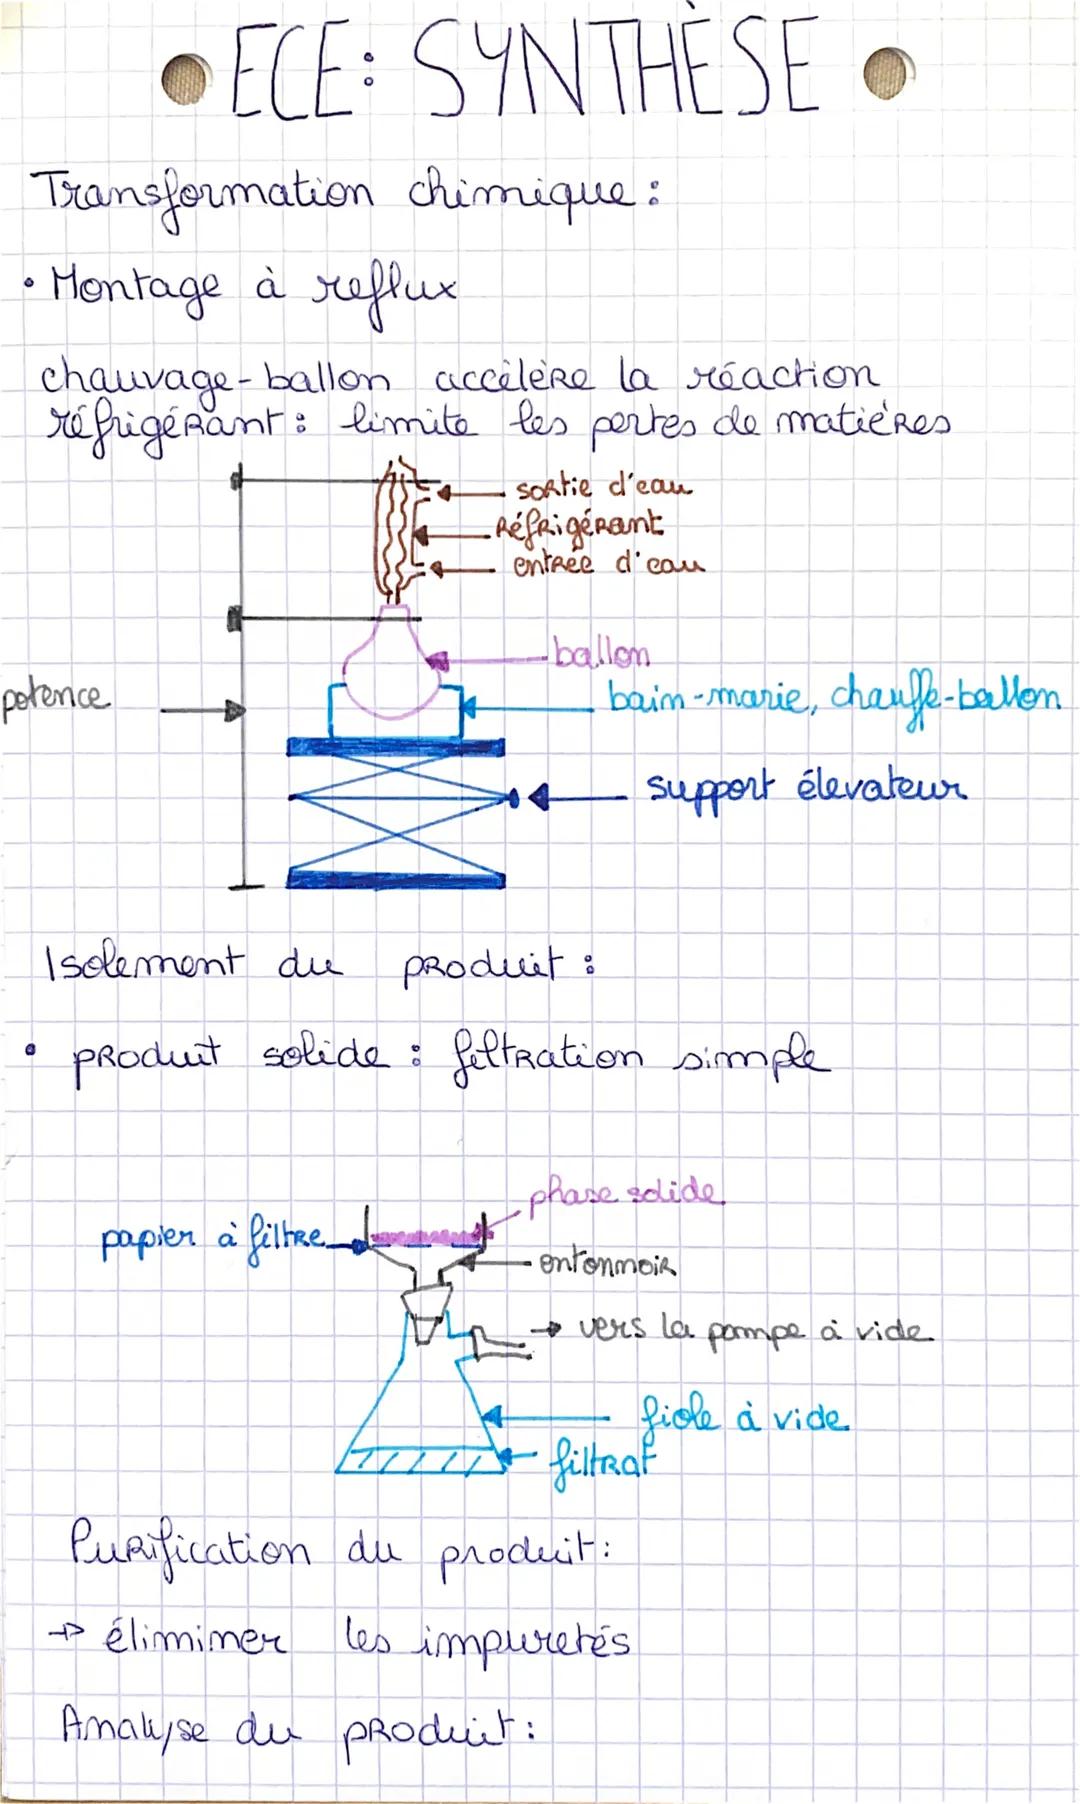 ECE: SYNTHÈSE
Transformation chimique:
• Montage à reflux
chauvage-ballon accélère la réaction
réfrigérant: limite les pertes de matières
sortie d'eau
Réfrigérant
entrée d'eau
ballon
potence
bain-marie, chauffe-ballon
support élevateur
Isolement du produit:
• produit solide: filtration simple
phase solide
papier à filtre
entonnoir
→ vers la pompe à vide
fiole à vide
filtrat
Purification du produit:
→ éliminer les impuretés
Analyse du produit: